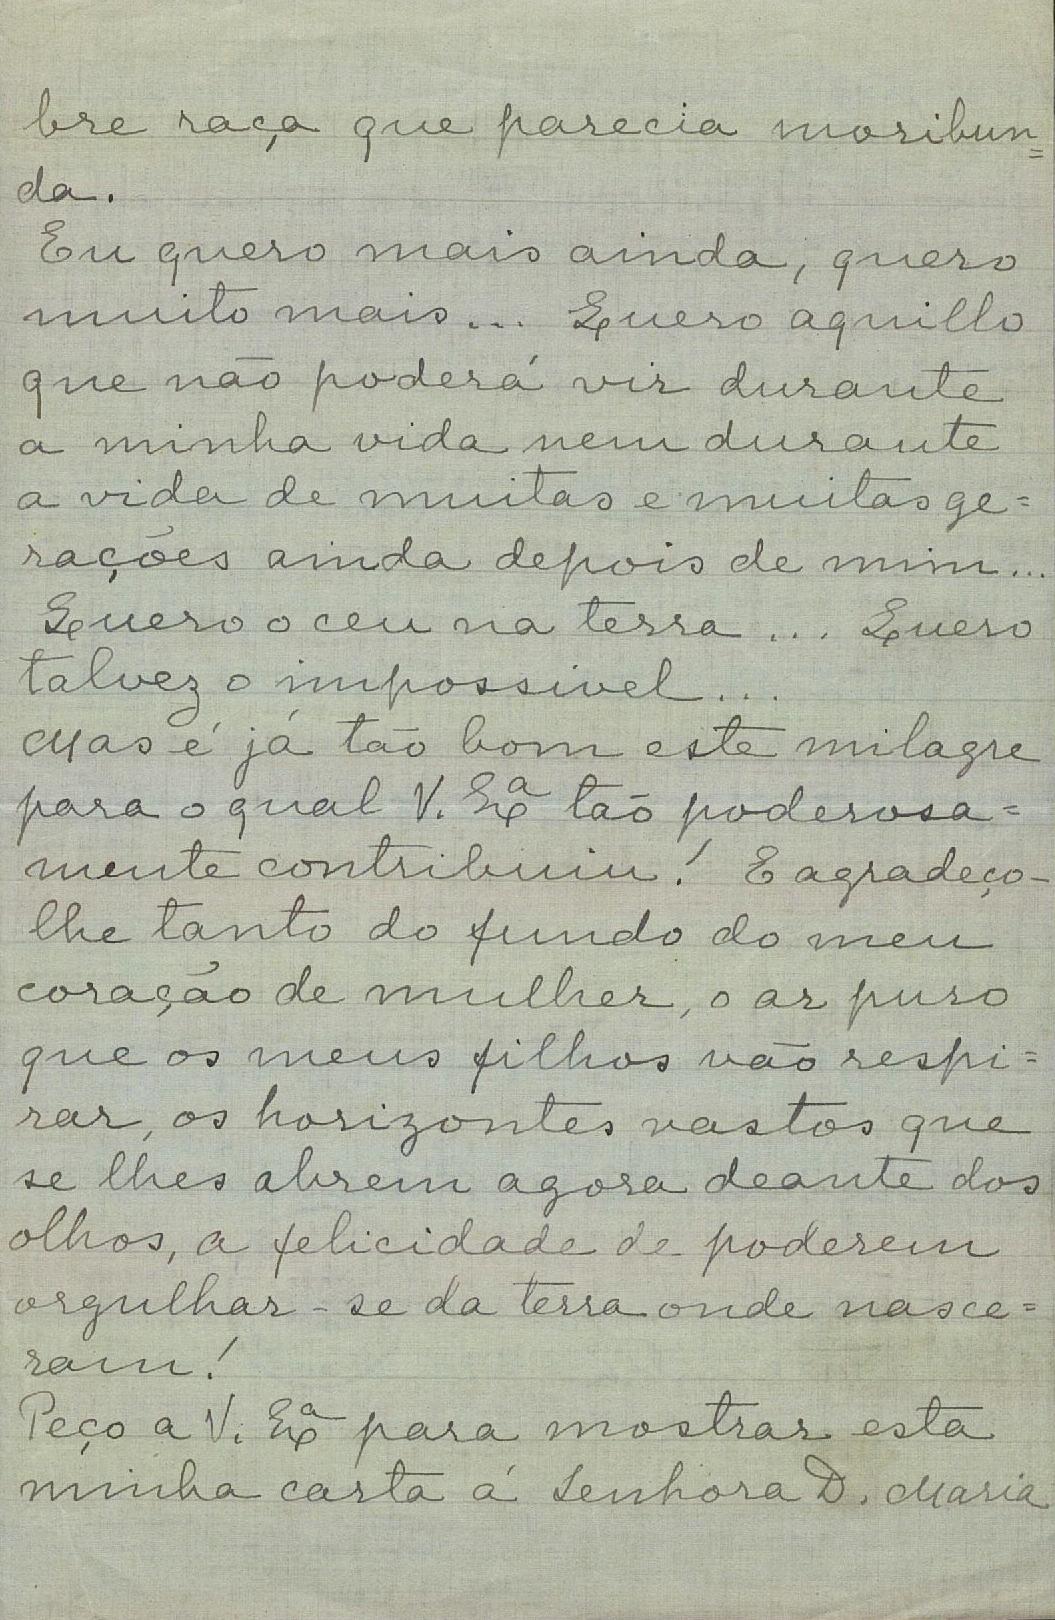 bre raça que parecia moribun=
da.
Eu quero mais ainda, quero
muito mais... Quero aquillo
que não poderá vir durante
a minha vida nem durante
a vida de muitas e muitas ge=
rações ainda depois de mim...
Quero o ceu na terra... Quero
talvez o impossivel...
Mas é já tão bom este milagre
para o qual V. Exª tão poderosa=
mente contribuiu! E agradeço-
lhe tanto do fundo do meu
coração de mulher, o ar puro
que os meus filhos vão respi=
rar, os horizontes vastos que
se lhes abrem agora deante dos
olhos, a felicidade de poderem
orgulhar-se da terra onde nasce=
ram!
Peço a V. Exª para mostrar esta
minha carta á Senhora D. Maria